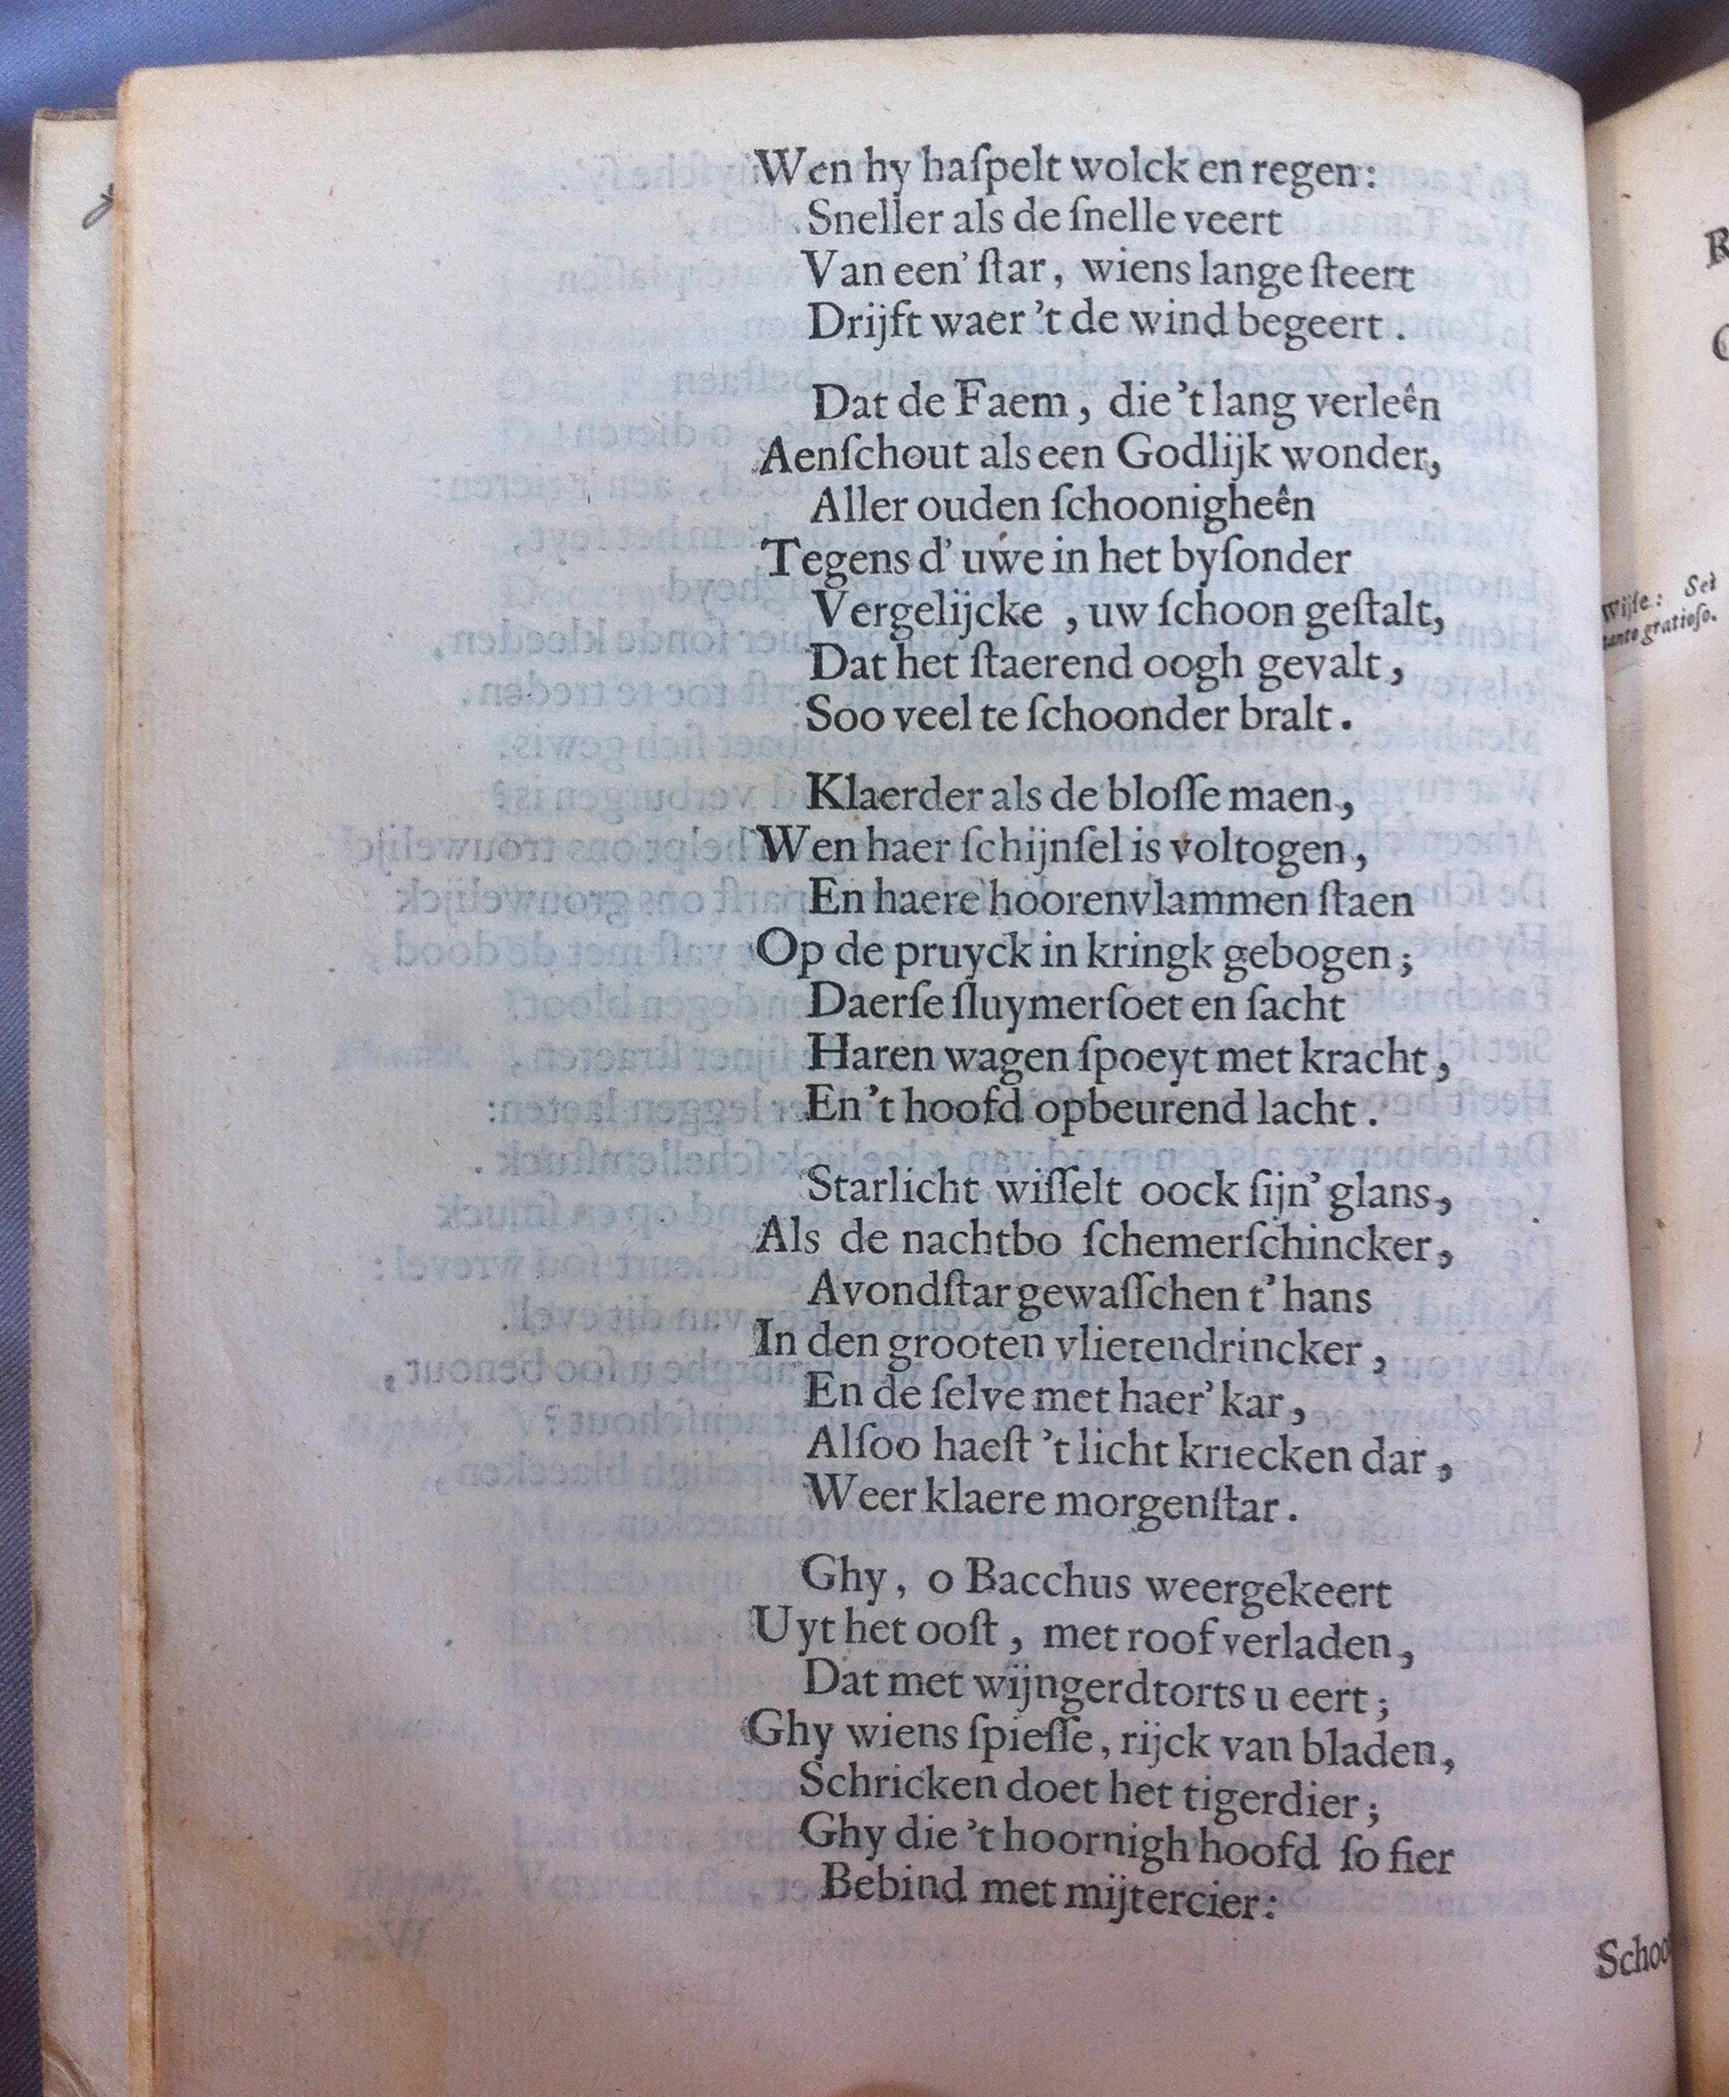 Wen hy haſpelt wolck en regen:
Sneller als de ſnelle veert
Van een' ſtar, wiens lange ſteert
Drijft waer 't de wind begeert.
Dat de Faem, die 't lang verleên
Aenſchout als een Godlijk wonder,
Aller ouden ſchoonigheên
Tegens d' uwe in het byſonder
Vergelijcke, uw ſchoon geſtalt,
Dat het ſtaerend oogh gevalt,
Soo veel te ſchoonder bralt.
Klaerder als de bloſſe maen,
Wen haer ſchijnſel is voltogen,
En haere hoorenvlammen ſtaen
Op de pruyck in kringk gebogen;
Daerſe ſluymerſoet en ſacht
Haren wagen ſpoeyt met kracht,
En 't hoofd opbeurend lacht.
Starlicht wiſſelt oock ſijn' glans,
Als de nachtbo ſchemerſchincker,
Avondſtar gewaſſchen t' hans
In den grooten vlietendrincker,
En de ſelve met haer' kar,
Alſoo haeſt 't licht kriecken dar,
Weer klaere morgenſtar.
Ghy, o Bacchus weergekeert
Uyt het ooſt, met roof verladen,
Dat met wijngerdtorts u eert;
Ghy wiens ſpieſſe, rijck van bladen,
Schricken doet het tigerdier;
Ghy die 't hoornigh hoofd ſo fier
Bebind met mijtercier:
Wijſe: Sei
tanto gratioſo.
Schoo